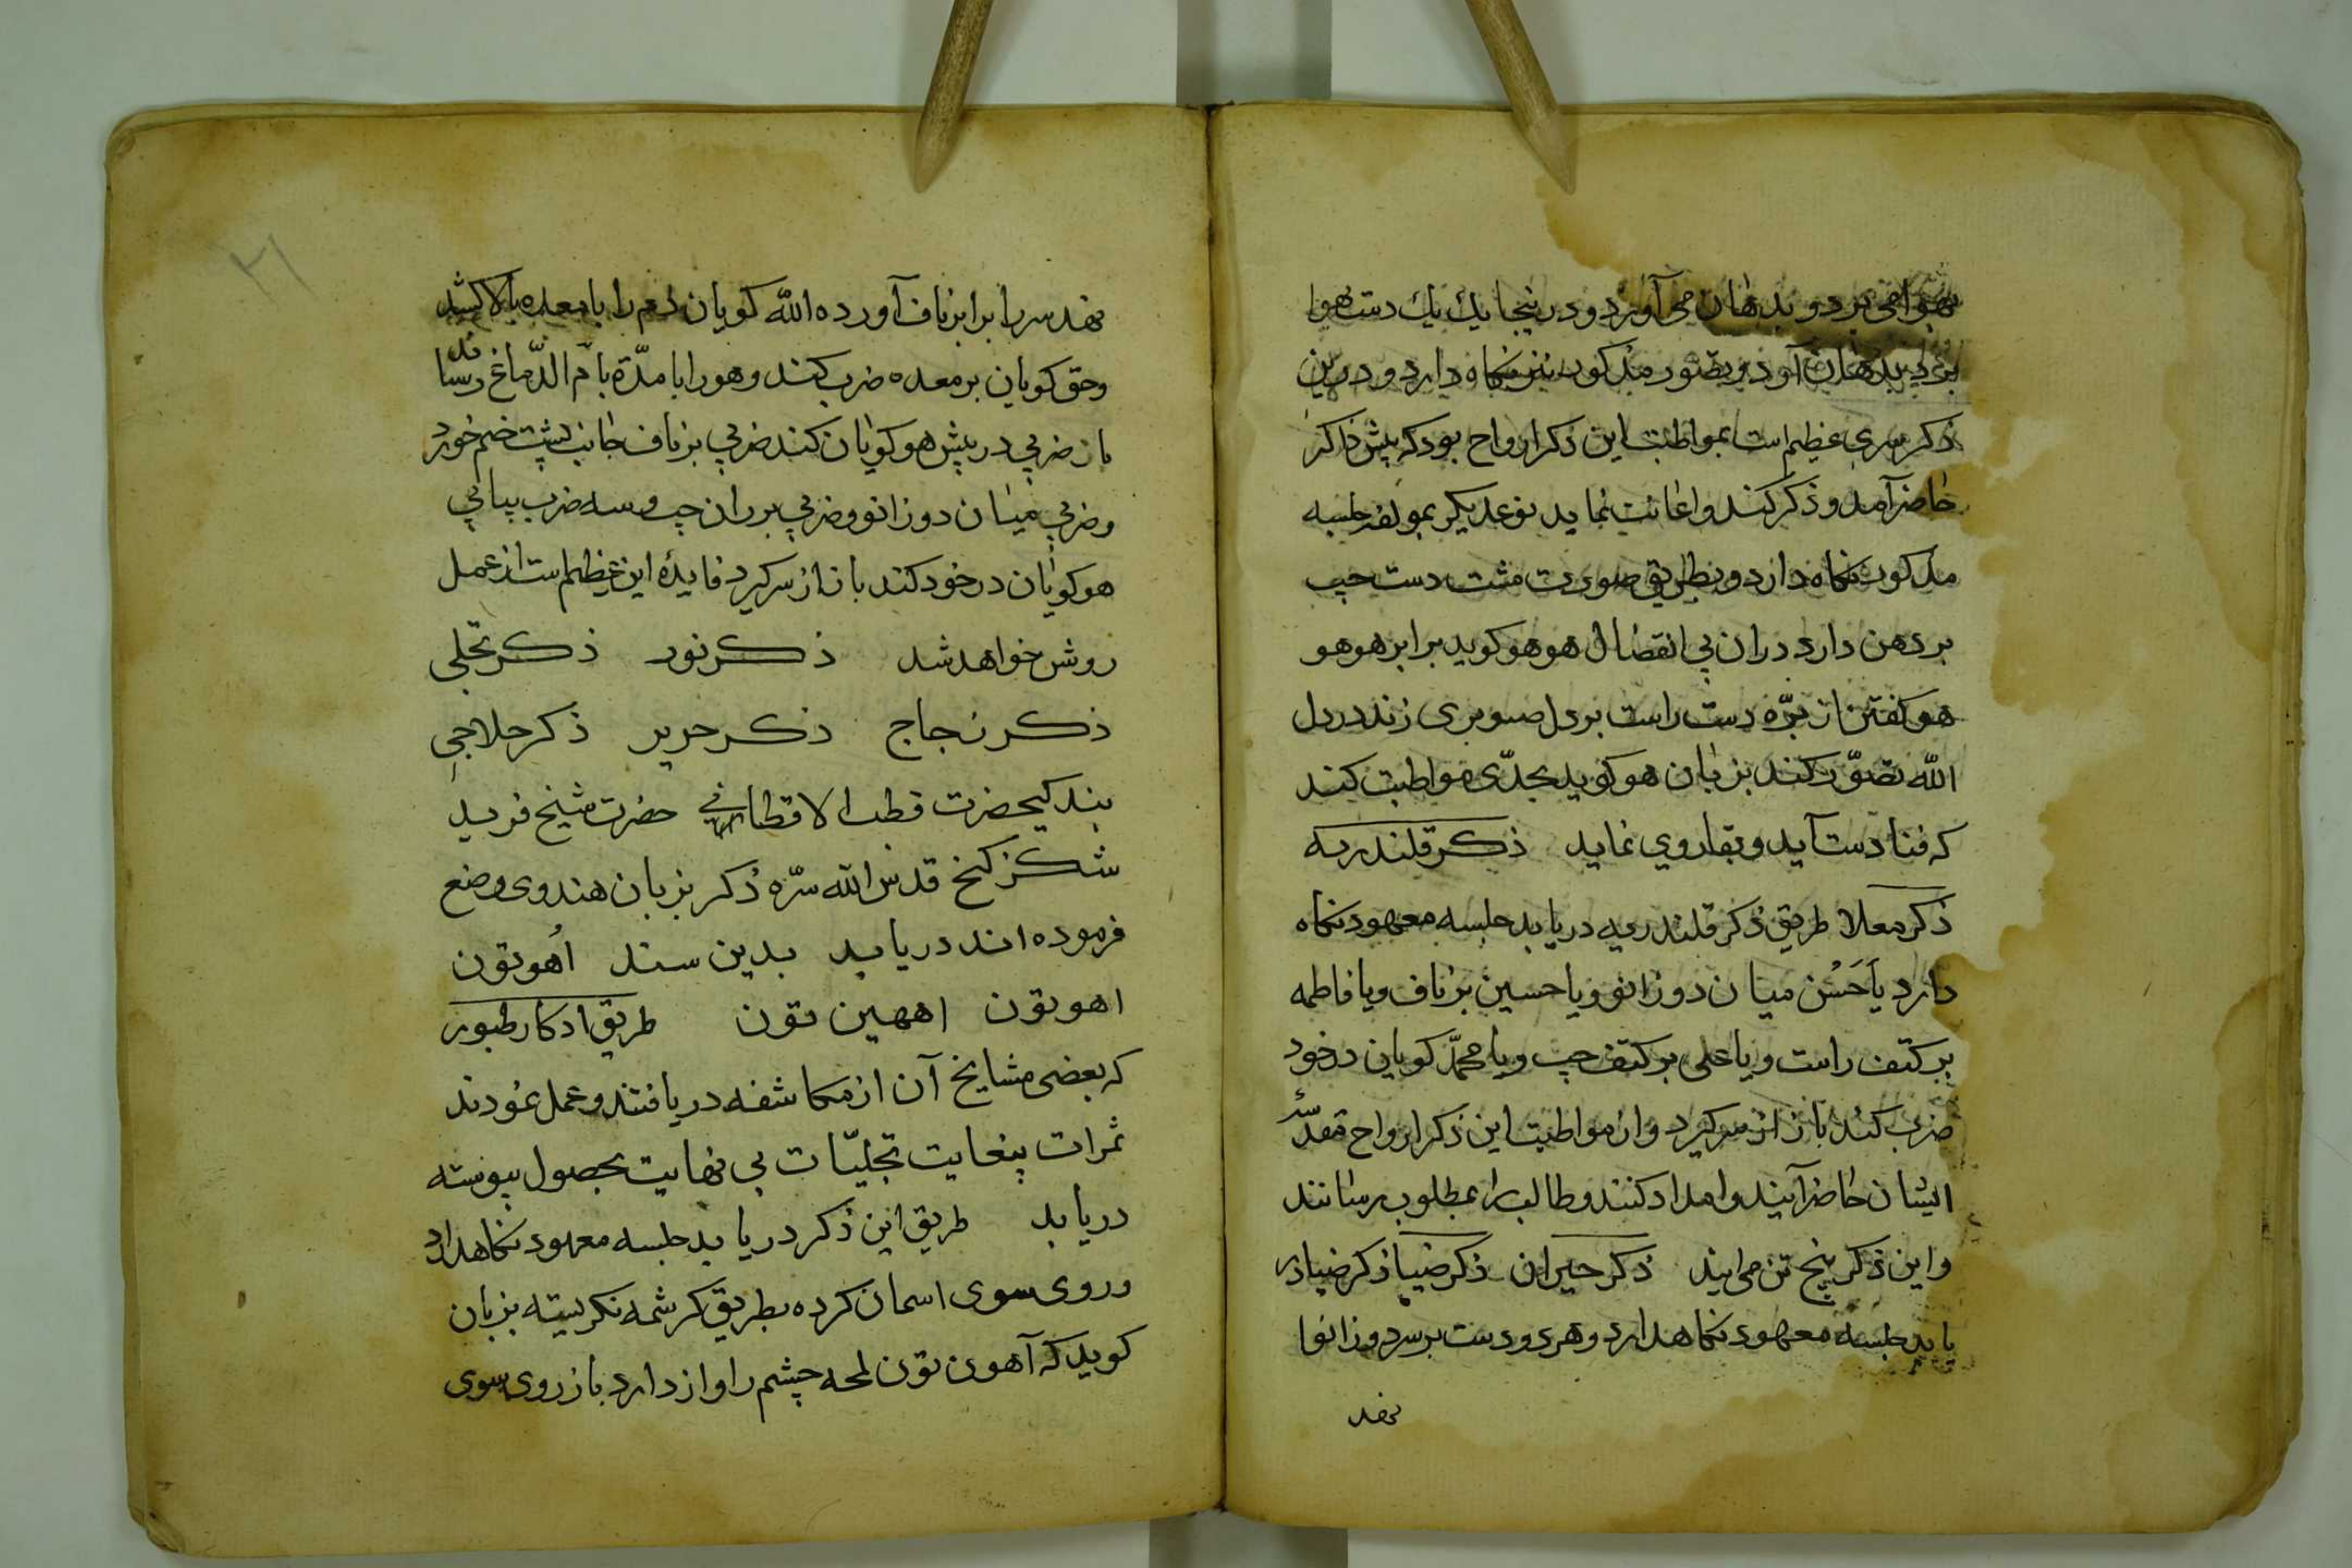 بهوا می برد و بدهان می آورد و درینجا یك یك دست هوا
برد بدهان آود و بصور مذکور نیز نکاه دارد و درین
ذکر سری عظیم است بمواظبت این ذکر ارواح بود که پیش ذاکر
حاضر آمد و ذکر کند و اعانت نماید نوعدیکر جلسه
مذکور نکاه دارد و بطریق صورت مشت دست چپ
بر دهن دارد دران بی انفصال هو هو کوید برابر هو هو
هو کفتن از پرّه دست راست بر دل صنوبری زند در دل
الله تصوّر کند بزبان هو کوید بجدّی مواظبت کند
که فنا دست آید و بقا روی نماید ذکر قلندریه
ذکر معلا طریق ذکر قلندریه دریابد جلسه معهود نکاه
دارد یا حَسَن میان دوزانو و یا حسین بر ناف و یا فاطمه
بر کتف راست و یا علی بر کتف چپ و یا محمّد کویان در خود
ضرب کند باز از سر کیرد و از مواظبت این ذکر ارواح مقدسهٔ
ایشان حاضر آیند و امداد کنند و طالب را بمطلوب رسانند
و این ذکر پنج تن می اند ذکر حیران ذکر ضیا ذکر ضیا در
یابد جلسه معهود نکاهدارد و هر دو دست بر سر دو زانوا
نهد
۲۱
نهد سر را برابر ناف آورده الله کویان دم را با معده بالا کشد
و حق کویان بر معده ضرب کند و هو را با مدّة بامّ الدّماغ رساند
باز ضربی در پیش هو کویان کند ضربی بر ناف جانب پشت خم خورد
و ضربی میان دوزانو و ضربی بر ران چپ و سه ضرب پیاپی
هو کویان در خود کند باز از سر کیرد فایدهٔ این عظیم است از عمل
روشن خواهد شد ذکر نور ذکر تجلی
ذکر زجاج ذکر حریر ذکر حلاجی
بندکیحضرت قطب الاقطاب حضرت شیخ فرید
شکر کنخ قدس الله سرّه ذکر بزبان هندوی وضع
فرموده اند دریابد بدین سند اُهو تون
اهو تون اههین تون طریق اذکار طیور
که بعضی مشایخ آن از مکاشفه دریافتند و عمل نمودند
ثمرات بیغایت تجلیّات بی نهایت بحصول پیوسته
دریابد طریق این ذکر دریابد جلسه معهود نکاهدارد
و روی سوی اسمان کرده بطریق کرشمه نکریسته بزبان
کوید که آهون تون لمحه چشم را واز دارد باز روی سوی